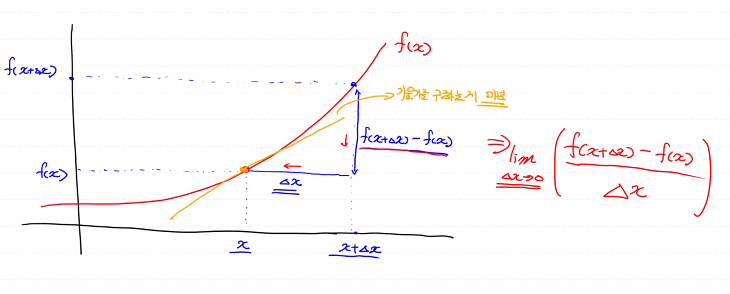 f(x)
f(x+Δx)
기울기를 구하는게 미분
f(x+Δx) - f(x)
⇒ lim Δx→0 ( f(x+Δx) - f(x) / Δx )
f(x)
Δx
x
x+Δx